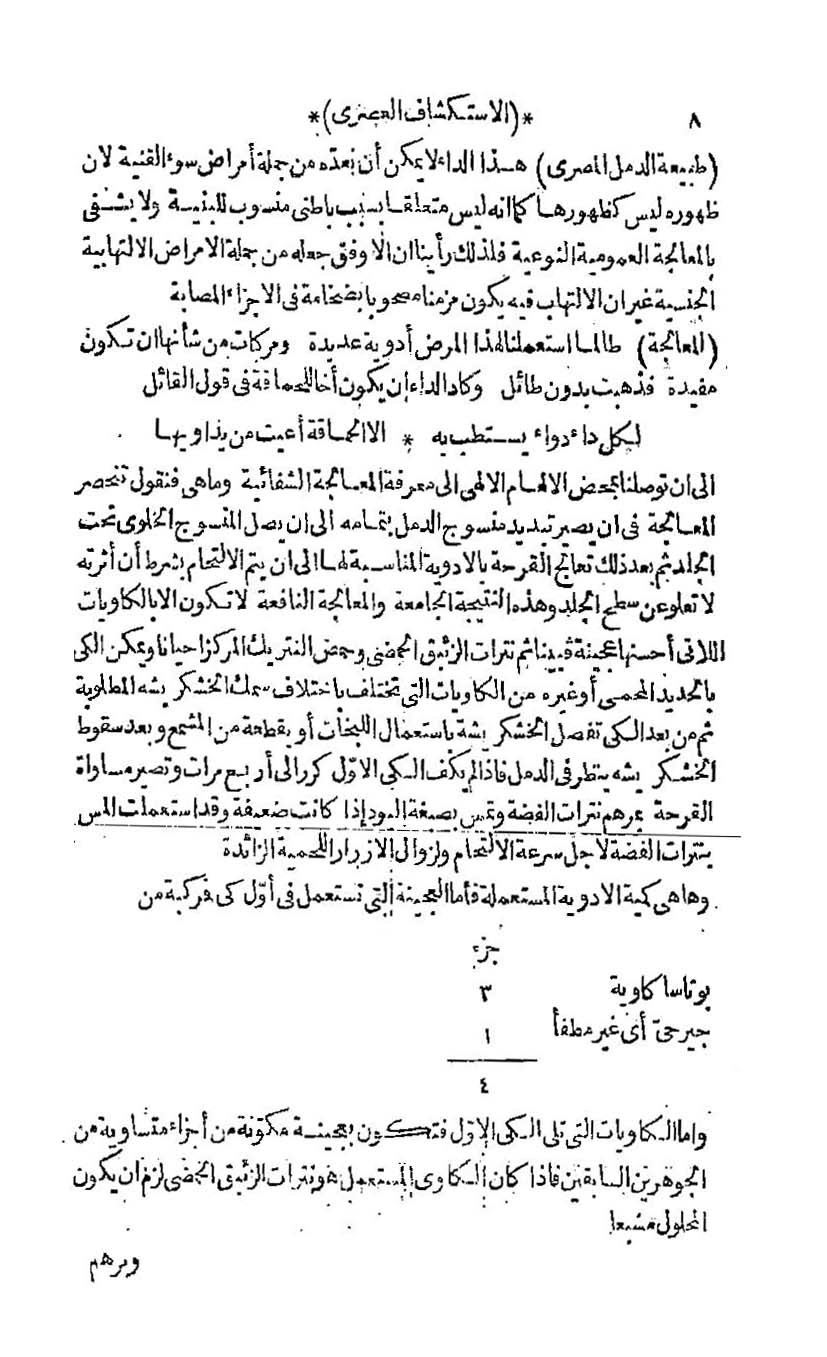 ٨ *(الاستكشاف العصرى)*
(طبيعة الدمل المصرى) هذا الداء لا يمكن أن نعدّه من جملة أمراض سوء القنية لان
ظهوره ليس كظهورها كما انه ليس متعلقا بسبب باطنى منسوب للبنية ولا يشفى
بالمعالجة العمومية النوعية فلذلك رأينا ان الاوفق جعله من جملة الامراض الالتهابية
الجنسية غير ان الالتهاب فيه يكون مزمنا مصحوبا بضخامة فى الاجزاء المصابة
(المعالجة) طالما استعملنا لهذا المرض أدوية عديدة ومركبات من شأنها ان تكون
مفيدة فذهبت بدون طائل وكاد الداء ان يكون أخا للحماقة فى قول القائل
لكل داء دواء يستطب به * الا الحماقة أعيت من يداويها
الى ان توصلنا بمحض الالهام الالهى الى معرفة المعالجة الشفائية وماهى فنقول تنحصر
المعالجة فى ان يصير تبديد منسوج الدمل بتمامه الى ان يصل المنسوج الخلوى تحت
الجلد ثم بعد ذلك تعالج القرحة بالادوية المناسبة لها الى ان يتم الالتحام بشرط أن أثرته
لا تعلو عن سطح الجلد وهذه النتيجة الجامعة والمعالجة النافعة لا تكون الا بالكاويات
اللاتى أحسنها عجينة فيينا ثم نترات الزئبق الحمضى وحمض النتريك المركز احيانا ويمكن الكى
بالحديد المحمى أو غيره من الكاويات التى تختلف باختلاف سمك الخشكريشه المطلوبة
ثم من بعد الكى تفصل الخشكريشة باستعمال اللبخات أو بقطعة من المشمع وبعد سقوط
الخشكريشه ينظر فى الدمل فاذا لم يكف الكى الاوّل كرر الى أربع مرات وتصير مساواة
القرحة بمرهم نترات الفضة وتمس بصبغة اليود إذا كانت ضعيفة وقد استعملت المس
بنترات الفضة لاجل سرعة الالتحام ولزوال الازرار اللحمية الزائدة
وهاهى كمية الادوية المستعملة فأما العجينة التى تستعمل فى أوّل كى فركبة من
جزء
بوتاسا كاوية ٣
جير حىّ أى غير مطفأ ١
٤
واما الكاويات التى تلى الكى الاوّل فتكون بعجينة مكوّنة من أجزاء متساوية من
الجوهرين السابقين فاذا كان الكاوى المستعمل هو نترات الزئبق الحمضى لزم ان يكون
المحلول مشبعا
ومرهم